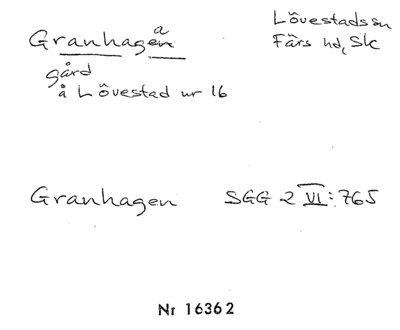 Granhagen a
Lövestads sn
Färs hd, Sk
gård
å Lövestad nr 16
Granhagen SGG 2 VI: 765
Nr 16362